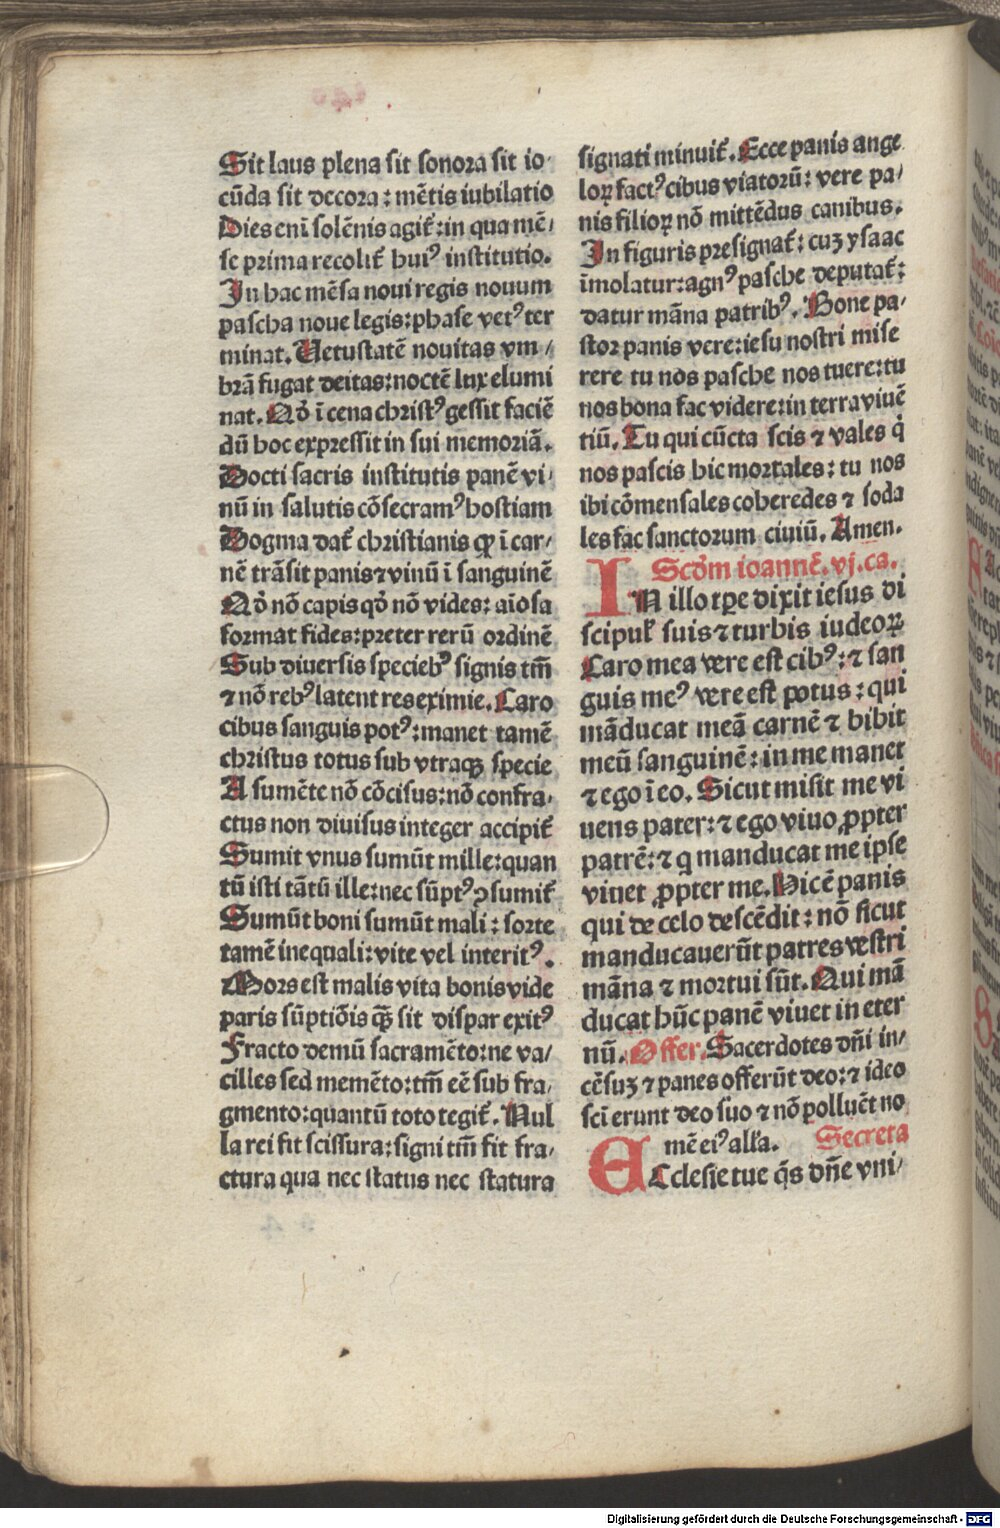 Sit laus plena sit sonora sit io-
cūda sit decora: mētis iubilatio
Dies enī solēnis agit᷑: in qua mē/
se prima recolit᷑ huiꝰ institutio.
In hac mēsa noui regis nouum
pascha noue legis: phase vetꝰ ter
minat. Vetustatē nouitas vm/
brā fugat deitas: noctē lux elumi
nat. Qđ ī cena christꝰ gessit faciē
dū hoc expressit in sui memoriā.
Docti sacris institutis panē vi/
nū in salutis cōsecramꝰ hostiam
Dogma dat᷑ christianis ꝙ ī car/
nē trāsit panis ⁊ vinū ī sanguinē
Qđ nō capis qđ nō vides: aīosa
format fides: preter rerū ordinē
Sub diuersis speciebꝰ signis tm̄
⁊ nō rebꝰ latent res eximie. Caro
cibus sanguis potꝰ: manet tamē
christus totus sub vtraqꝫ specie
A sumēte nō cōcisus: nō confra/
ctus non diuisus integer accipit᷑
Sumit vnus sumūt mille: quan
tū isti tātū ille: nec sūptꝰ ꝯsumit᷑
Sumūt boni sumūt mali: sorte
tamē inequali: vite vel interitꝰ.
Mors est malis vita bonis vide
paris sūptiōis qꝫ̄ sit dispar exitꝰ
Fracto demū sacramēto: ne va/
cilles sed memēto: tm̄ eē sub fra/
gmento: quantū toto tegit᷑. Nul
la rei fit scissura: signi tm̄ fit fra/
ctura qua nec status nec statura
signati minuit᷑. Ecce panis ange
loꝝ factꝰ cibus viatorū: vere pa/
nis filioꝝ nō mittēdus canibus.
In figuris presignat᷑: cuꝫ ysaac
īmolatur: agnꝰ pasche deputat᷑:
datur māna patribꝰ. Bone pa/
stor panis vere: iesu nostri mise
rere tu nos pasche nos tuere: tu
nos bona fac videre: in terra viuē
tiū. Tu qui cūcta scis ⁊ vales q̇
nos pascis hic mortales: tu nos
ibi cōmensales coheredes ⁊ soda
les fac sanctorum ciuiū. Amen.
Scđm ioannē. vj. ca.
IN illo tꝑe dixit iesus di
scipul᷑ suis ⁊ turbis iudeoꝝ
Caro mea vere est cibꝰ: ⁊ san
guis meꝰ vere est potus: qui
māducat meā carnē ⁊ bibit
meū sanguinē: in me manet
⁊ ego ī eo. Sicut misit me vi
uens pater: ⁊ ego viuo ꝓpter
patrē: ⁊ q̇ manducat me ipse
viuet ꝓpter me. Hic ē panis
qui de celo descēdit: nō sicut
manducauerūt patres vestri
māna ⁊ mortui sūt. Qui mā
ducat hūc panē viuet in eter
nū. Offer. Sacerdotes dn̄i in/
cēsuꝫ ⁊ panes offerūt deo: ⁊ ideo
scī erunt deo suo ⁊ nō polluēt no
mē eiꝰ all'a. Secreta
ECclesie tue q̄s dn̄e vni/
Digitalisierung gefördert durch die Deutsche Forschungsgemeinschaft - DFG